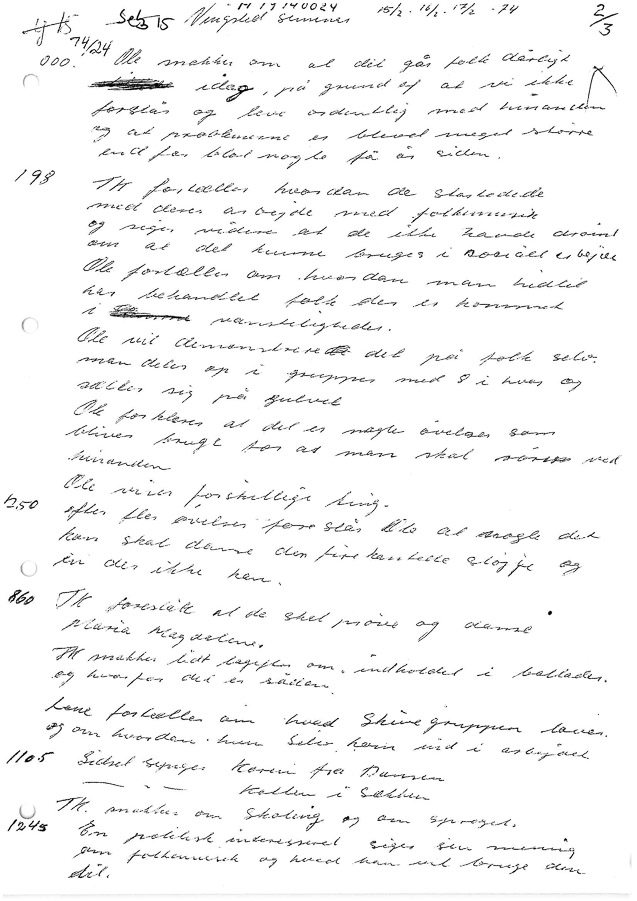 15 Vingsted seminar M 19740024 15/2 - 16/2 - 17/2 - 74 2/3
74/24
000. Ole snakker om at det går folk dårligt
idag, på grund af at vi ikke
forstår og leve ordentlig med hinanden
og at problemerne er blevet meget større
end for blot nogle få år siden.
198 TK fortæller hvordan de startede
med deres arbejde med folkemusik
og siger videre at de ikke havde drømt
om at det kunne bruges i socialt arbejde
Ole fortæller om hvordan man hidtil
har behandlet folk der er kommet
i vanskeligheder.
Ole vil demonstrere det på folk selv.
man deler op i grupper med 8 i hver og
sætter sig på gulvet
Ole forklarer at det er nogle øvelser som
bliver brugt for at man skal røre ved
hinanden
Ole viser forskellige ting.
1250 efter fler øvelser foreslår Ole at nogle der
kan skal danse den firkantede sløjfe og
en der ikke kan.
860 TK foreslår at de skal prøve og danse
Maria Magdalene.
TK snakker lidt bagefter om indholdet i ballader.
og hvorfor det er sådan.
Lene fortæller om hvad Skivegruppen laver.
og om hvordan hun selv kom ind i arbejdet
1105 Sidsel synger Karen fra Dansen
— " — Katten i Sækken
TK. snakker om Skoling og om sproget.
1245 En politisk interesseret siger sin mening
om folkemusik og hvad han vil bruge den
til.